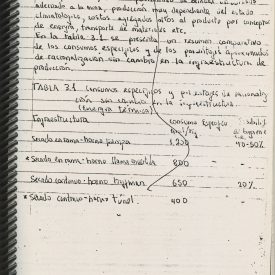 adecuado a la zona, producción muy dependiente del estado
climatológico, costos agregados altos al producto por conceptos
de energía, transporte de materiales etc.
En la tabla 3.1 se presenta un resumen comparativo
de los consumos específicos y de los porcentajes aproximados
de racionalización sin cambio en la infraestructura de
producción.
TABLA 3.1 consumos específicos y porcentajes de racionaliza
ción sin cambio en la infraestructura.
(Energía térmica)
Infraestructura consumo específico
Secado en rama - horno pampa 40-50%
* Secado en rama - horno llama invertida 800 -
Secado continuo - horno Hoffman 650 20%
* Secado continuo - horno túnel. 400 -